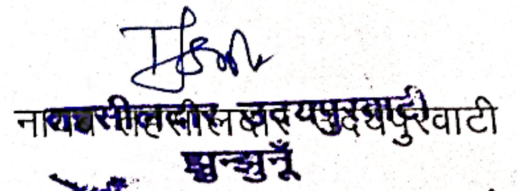 नायब तहसीलदार उदयपुरवाटी
झुन्झुनूँ